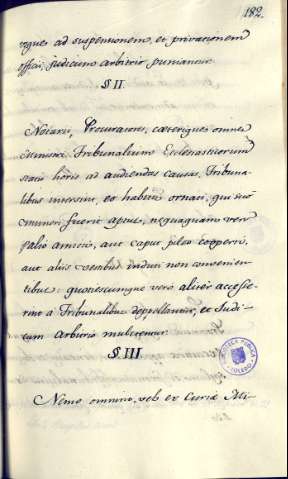 182.
usque ad suspensionem, et privationem
officii, Judicum arbitrio puniantur.
§ II.
Notarii, Procuratores, caeterique omnes
Ministri Tribunalium Ecclesiasticorum
statis horis ad audiendas causas, Tribuna-
libus intersint, eo habitu ornati, qui suo
muneri fuerit aptus, nequaquam vero
Palio amicti, aut caput pileo cooperti,
aut aliis vestibus induti non convenien-
tibus: quotiescunque vero aliter accesse-
rint à Tribunalibus depellantur, et Judi-
cum Arbitrio mulctentur.
§ III
Nemo omnino, vel ex Curiae Mi-
BIBLIOTECA PUBLICA
TOLEDO